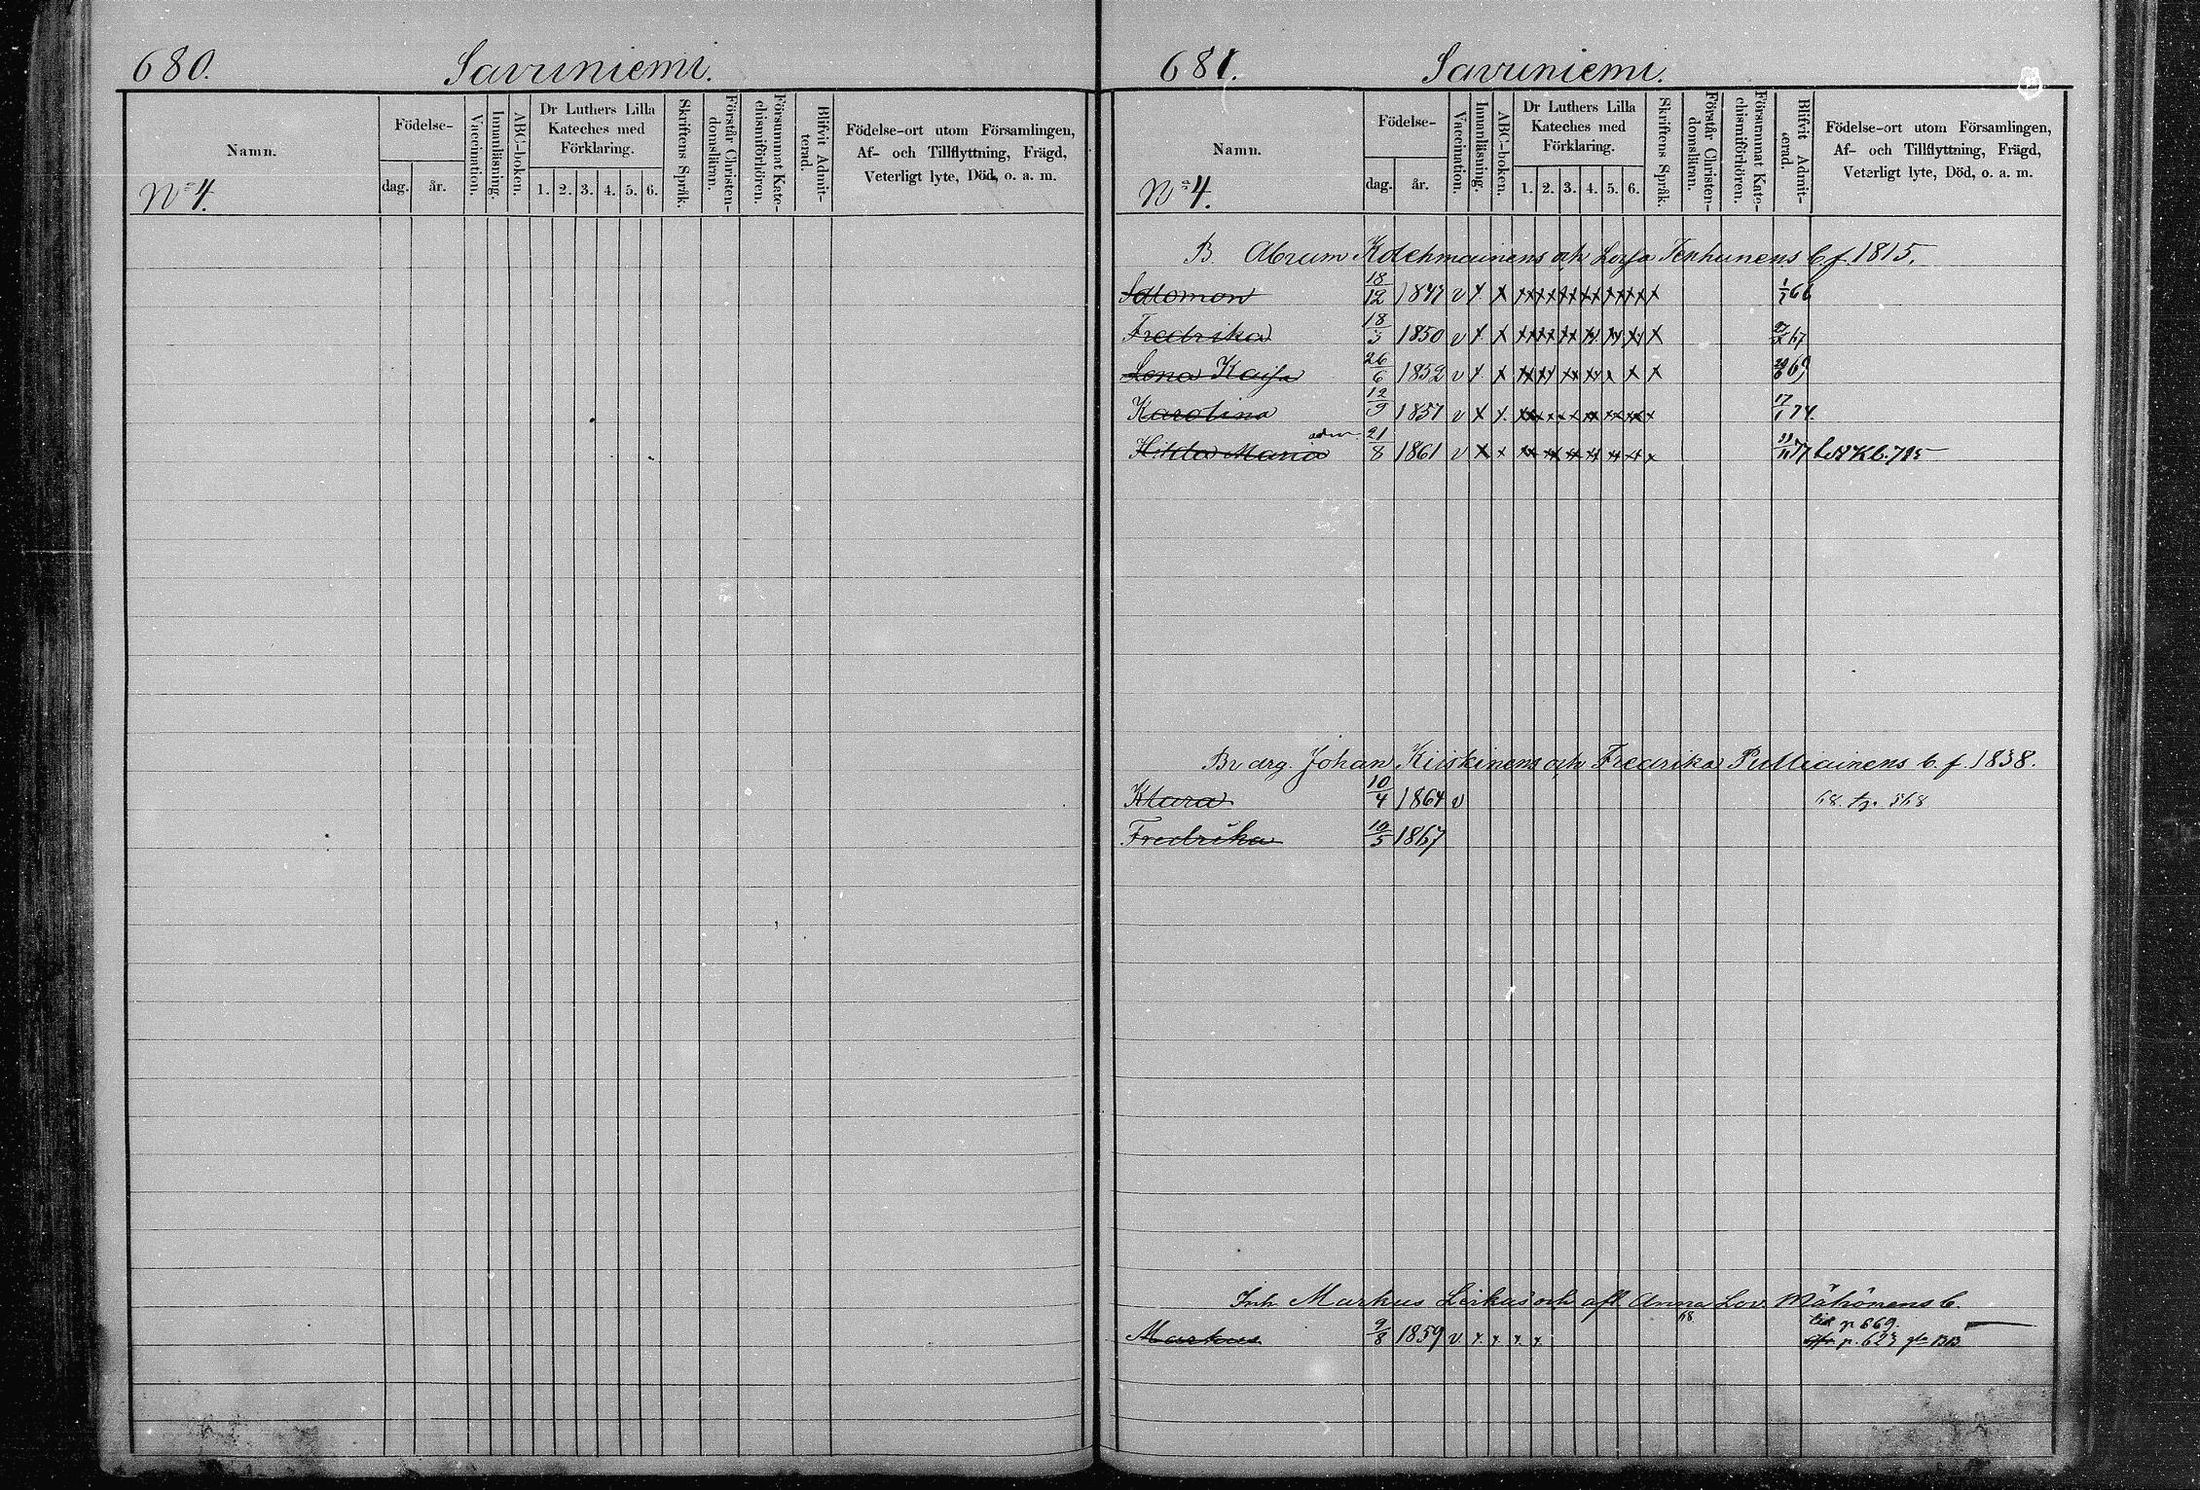 680.
Savuniemi.
Namn.
Födelse-
dag.
år.
Vaccination.
Innanläsning.
ABC-boken.
Dr Luthers Lilla
Kateches med
Förklaring.
1. 2. 3. 4. 5. 6.
Skriftens Språk.
Förstår Christen-
domsläran.
Försummat Kate-
chismiförhören.
Blifvit Admit-
terad.
Födelse-ort utom Församlingen,
Af- och Tillflyttning, Frägd,
Veterligt lyte, Död, o. a. m.
N 4.
681.
Savuniemi.
Namn.
Födelse-
dag.
år.
Vaccination.
Innanläsning.
ABC-boken.
Dr Luthers Lilla
Kateches med
Förklaring.
1. 2. 3. 4. 5. 6.
Skriftens Språk.
Förstår Christen-
domsläran.
Försummat Kate-
chismiförhören.
Blifvit Admit-
terad.
Födelse-ort utom Församlingen,
Af- och Tillflyttning, Frägd,
Veterligt lyte, Död, o. a. m.
N 4.
B. Abram Kolehmainens och b. f. 1815.
Salomon 18/12 1847 v x x
Fredrika 18/3 1850 v x x
Lena Kaisa 26/6 1852 v x x
Karolina 12/9 1857 v x x 17/1 74.
Hilda Maria adm. 21/8 1861 v x x
Br drg. Johan Kiiskinens och Fredrika Pulliainens b. f. 1838.
Klara 10/4 1864 v
Fredrika 10/5 1867
Inh Markus Leikas och afl. Anna Lov. Mähönens b.
p 669.
Markus 9/8 1859 v x x x x p. 627